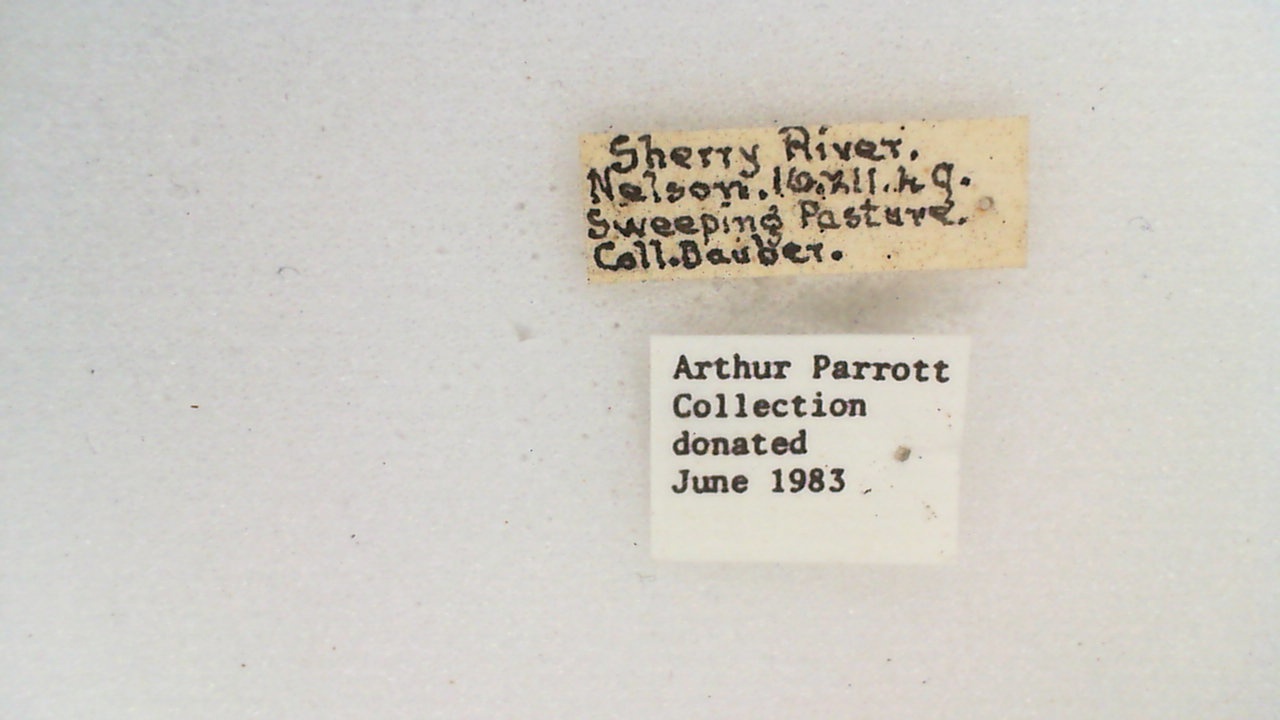 Sherry River.
Nelson. 16.XII.49.
Sweeping Pasture.
Coll. Bauber.
Arthur Parrott
Collection
donated
June 1983